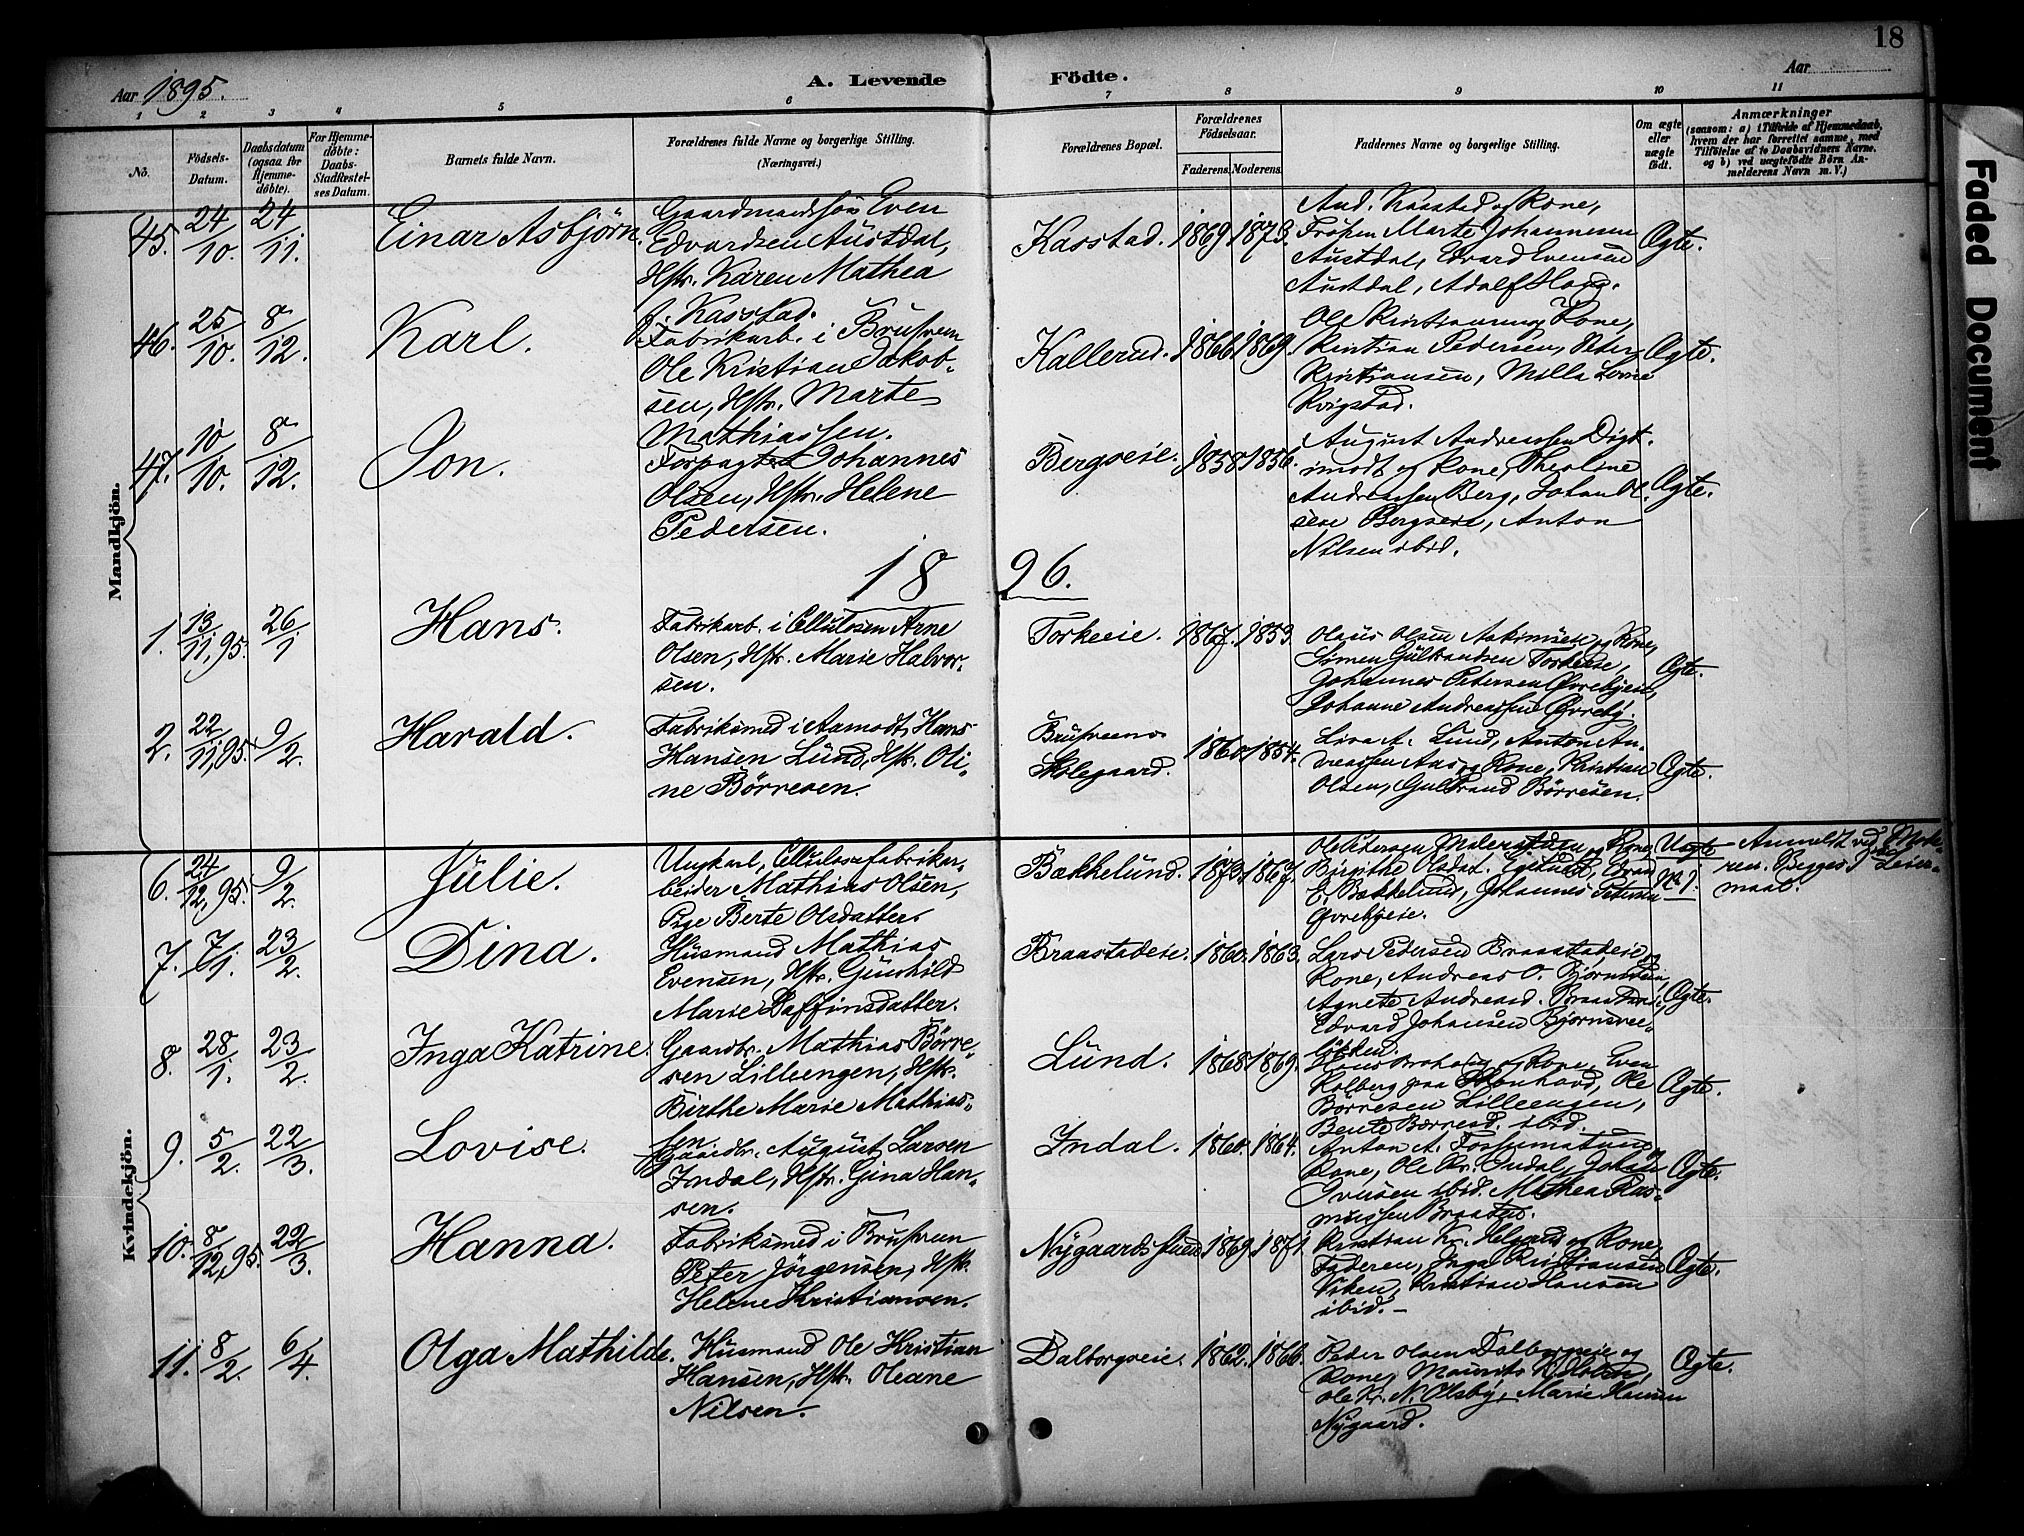 18
Aar 1895.
A. Levende Födte.
Aar
1 2 3 4 5 6 7 8 9 10 11
No.
Födsels-
Datum.
Daabsdatum
(ogsaa for
Hjemme-
döbte).
For Hjemme-
döbte:
Daabs-
Stadfæstel-
ses Datum.
Barnets fulde Navn.
Forældrenes fulde Navne og borgerlige Stilling.
(Næringsvei.)
Forældrenes Bopæl.
Forældrenes
Födselsaar.
Faderens. Moderens.
Faddernes Navne og borgerlige Stilling.
Om ægte
eller
uægte
födt.
Anmærkninger
(saasom: a) i Tilfælde af Hjemmedaab,
hvem der har forrettet samme, med
Tilföielse af to Daabsvidners Navne,
og b) ved uægtefödte Börn An-
melderens Navn m. V.)
Mandkjön.
45. 24/10. 24/11. Einar Asbjörn.
Gaardmandssön Even
Edvardsen Austdal,
Hstr. Karen Mathea
J. Kasstad.
Kasstad. 1869. 1873.
And. Kasstad og Kone,
Fröken Marte Johannesen
Austdal, Edvard Evensen
Austdal, Adolf Haug.
Ægte.
46. 25/10. 8/12. Karl.
Fabrikarb. i Brufoem
Ole Kristian Jakob-
sen, Hstr. Marte
Mathiassen.
Kallerud. 1866. 1869.
Ole Kristiansen og Kone,
Kristian Pedersen, Peter
Kristiansen, Milla Lovise
Kvigstad.
Ægte.
47. 10/10. 8/12. Jon.
Forpagter Johannes
Olsen, Hstr. Helene
Pedersen.
Bergseie. 1858. 1856.
August Andreassen
og Kone, Theoline
Andreassen Berg, Johan Ol.
sen Bergseie, Anton
Nilsen ibid.
Ægte.
1896.
1. 13/11,95. 26/1 Hans.
Fabrikarb. i Cellulosen Arne
Olsen, Hstr. Marie Halvor-
sen.
Torkeeie. 1867. 1853.
Olaus Olsen og Kone,
Simen Gulbrandsen Torkeeie,
Johannes Petersen Övrebyeie,
Johanne Andreassen Övreby.
Ægte.
2. 22/11,95. 9/2. Harald.
Fabriksmed i Aamodt, Hans
Hansen Lund, Hstr. Oli-
ne Börresen.
Brufoens
Stölegaard.
1860. 1854.
Lina A. Lund, Anton An-
dreassen Aas og Kone, Kristian
Olsen, Gulbrand Börresen.
Ægte.
Kvindekjön.
6. 24/12,95. 9/2. Julie.
Ungkarl, Cellulosefabrikar-
beider Mathias Olsen,
Pige Berte Olsdatter.
Bækkelund. 1873. 1867.
Ole Petersen og Kone,
Birgithe Olsdat. Evan
E. Bækkelund, Johannes Petersen
Övrebyeie.
Uægte
No. 1.
Anmeldt ved Mode-
ren. Begges 1ste Leier-
maal.
7. 7/1. 23/2. Dina.
Husmand Mathias
Evensen, Hstr. Gunhild
Marie Daffinsdatter.
Braastadeie. 1860. 1863.
Lars Pedersen Braastadeie og
Kone, Andreas O.
Agnete Andreasd.
Edvard Johansen Bjørnsvee-
lökken.
Ægte.
8. 28/1. 23/2. Inga Katrine.
Gaardbr. Mathias Börre-
sen Lilleengen, Hstr.
Birthe Marie Mathias-
sen.
Lund. 1868. 1869.
Hans og Kone, Even
Kolberg paa Ole
Börresen Lilleengen,
Bente Börresd. ibid.
Ægte.
9. 5/2. 22/3. Lovise.
Gaardbr. August Larsen
Indal, Hstr. Gina Han-
sen.
Indal. 1860. 1864.
Anton A.
Kone, Ole Kr. Indal, Johan
Ivensen ibid. Mathea Ras-
mussen Braastad.
Ægte.
10. 8/12,95. 22/3. Hanna.
Fabriksmed i Brufoem
Peter Jörgensen, Hstr.
Helene Kristiansen.
Nygaardsstuen 1869. 1871.
Kristian Kr. Helgerud og Kone,
Faderen, Inga Kristiansen
Viken, Kristian Hansen
ibid.
Ægte.
11. 8/2. 6/4. Olga Mathilde.
Husmand Ole Kristian
Hansen, Hstr. Oleane
Nilsen.
Dalborgseie. 1862. 1866.
Peder Olsen Dalborgseie og
Kone, Maurits
Ole Kr. N. Olsby, Marie Hansen
Nygaard.
Ægte.
Faded Document